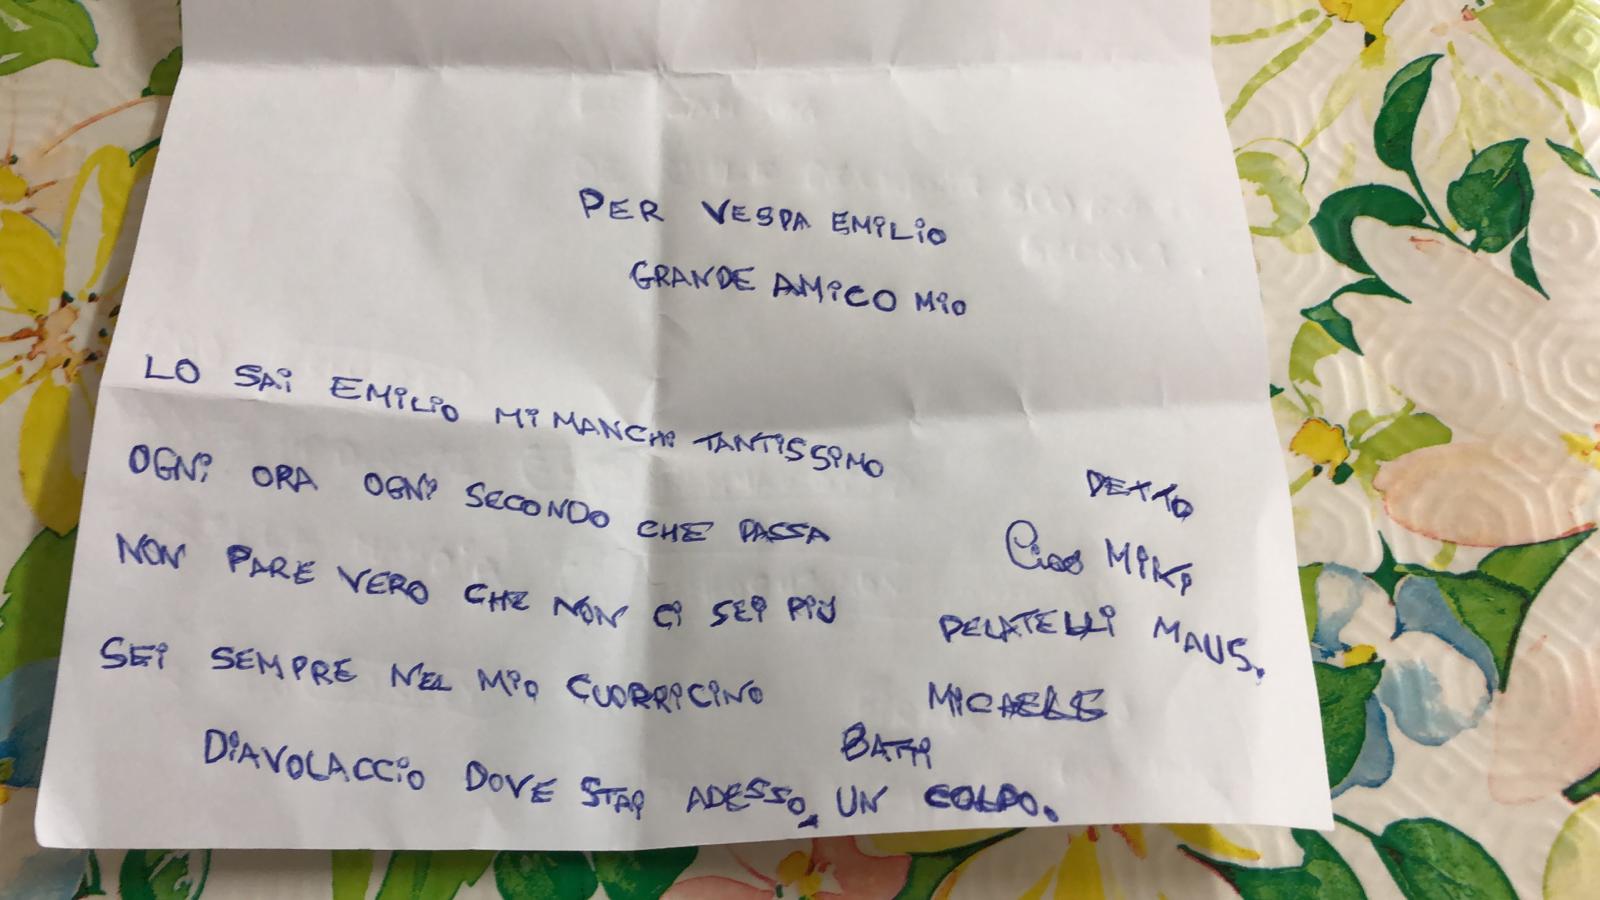 PER VESPA EMILIO
GRANDE AMICO MIO
LO SAI EMILIO MI MANCHI TANTISSIMO
OGNI ORA OGNI SECONDO CHE PASSA
NON PARE VERO CHE NON CI SEI PIÙ
SEI SEMPRE NEL MIO CUORRICINO
DIAVOLACCIO DOVE STAI ADESSO, UN COLPO.
BATTI
DETTO
Ciao MIKI
PELATELLI MAUS.
MICAELE